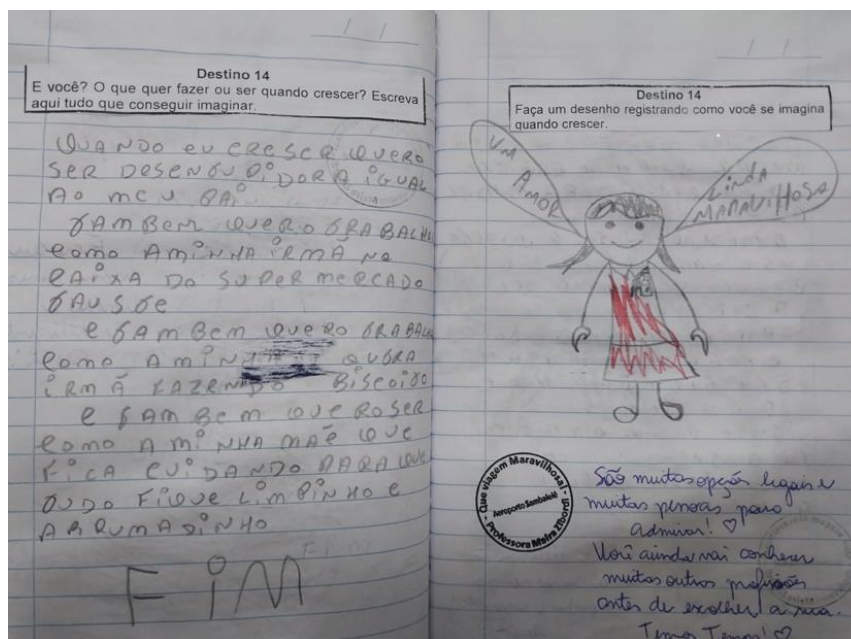 Destino 14
E você? O que quer fazer ou ser quando crescer? Escreva
aqui tudo que conseguir imaginar.
QUANDO EU CRESCR QUERO
SER DESENTUPIDORA IGUAL
AO MEU PAI
TAMBEM QUERO TRABALHA
COMO AMINHA IRMÃ NO
CAIXA DO SUPER MERCADO
TAUSTE
E TAMBEM QUERO TRABALHA
COMO AMINHA OUTRA
IRMÃ FAZENDO BISCOITO
E TAMBEM QUEROSER
COMO A MINHA MÃE QUE
FICA CUIDANDO PARA QUE
TUDO FIQUE LIMPINHO E
ARRUMADINHO
FIM
Destino 14
Faça um desenho registrando como você se imagina
quando crescer.
UM
AMOR
LINDA
MARAVILHOSA
- Que viagem Maravilhosa! -
Aeroporto Sambalelê
Professora Maíra Zibordi
São muitas opções legais e
muitas pessoas para
admirar! ♡
Você ainda vai conhecer
muitas outras profissões
antes de escolher a sua.
Temos Tempo! ♡